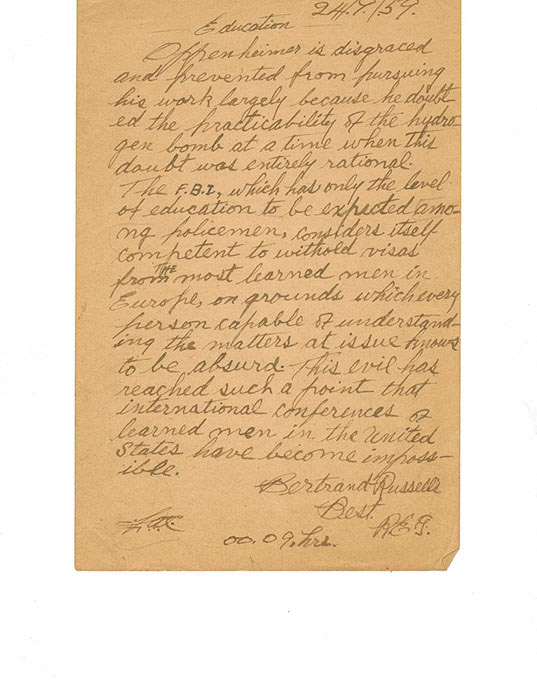 24.7./59.
Education
Oppenheimer is disgraced
and prevented from pursuing
his work largely because he doubt-
ed the practicability of the hydro-
gen bomb at a time when this
doubt was entirely rational.
The F.B.I, which has only the level
of education to be expected amo-
ng policemen, considers itself
competent to withold visas
from THE most learned men in
Europe, on grounds which every
person capable of understand-
ing the matters at issue knows
to be absurd. This evil has
reached such a point that
international conferences of
learned men in the United
States have become imposs-
ible.
Bertrand Russells
Best.
R.E.G.
00.09.hrs.